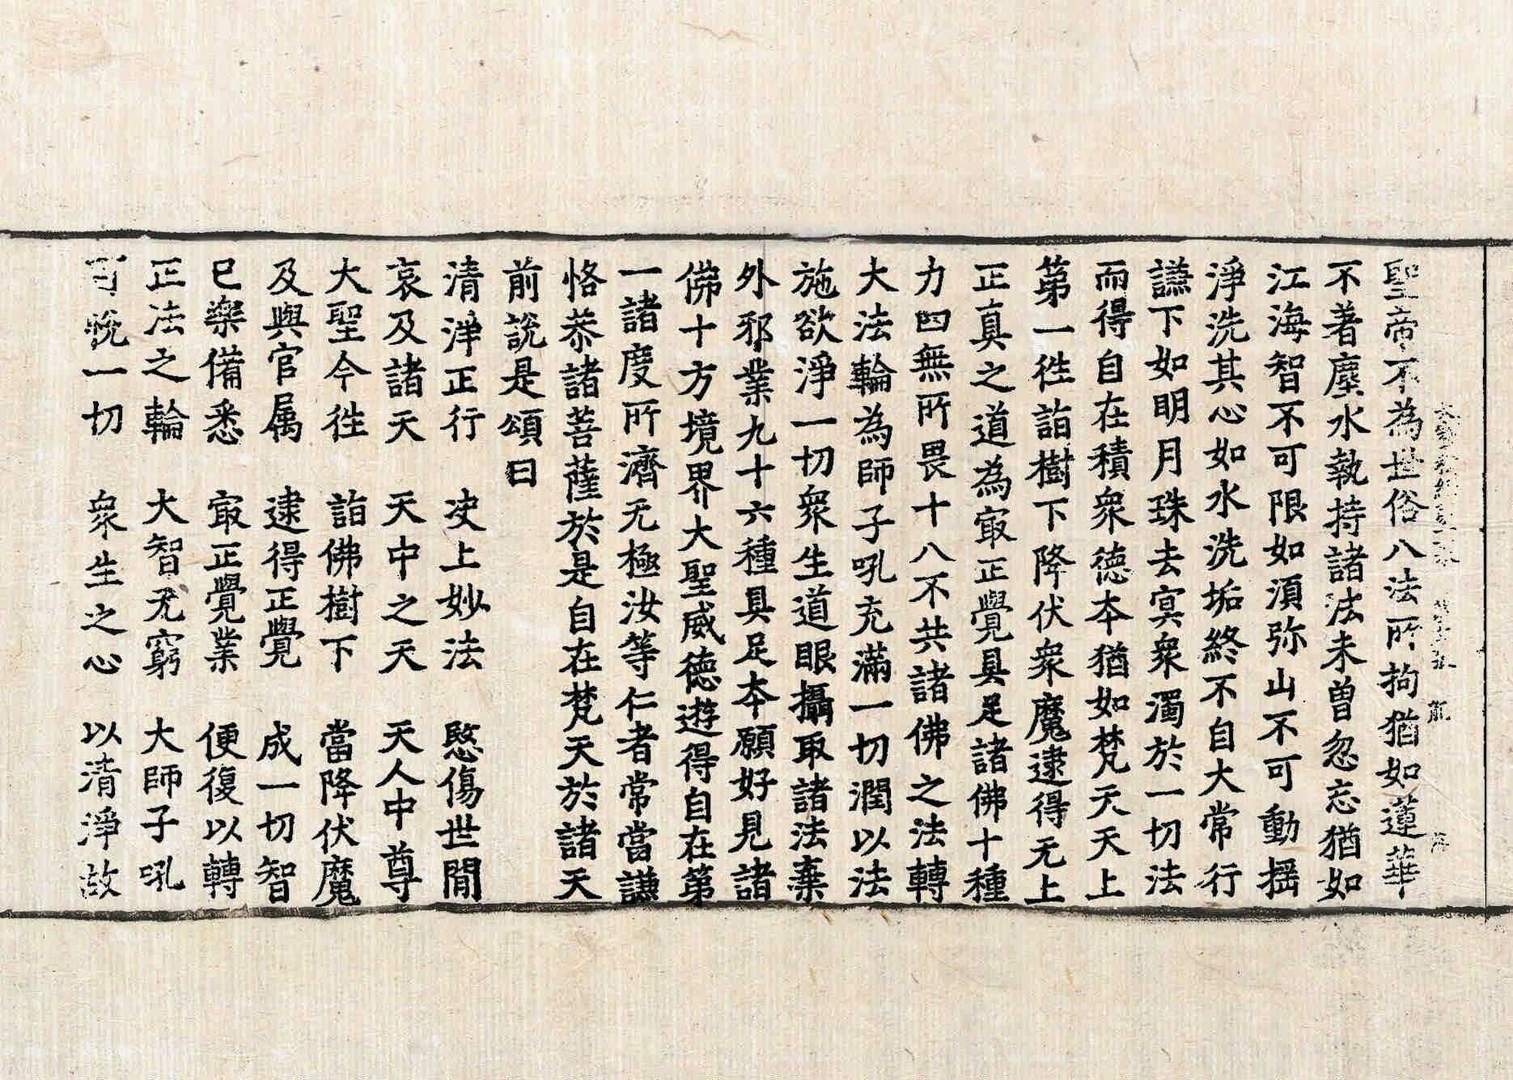 聖帝不為世俗八法所拘猶如蓮華
不著塵水執持諸法未曾忽忘猶如
江海智不可限如須弥山不可動揺
淨洗其心如水洗垢終不自大常行
謙下如明月珠去冥衆濁於一切法
而得自在積衆德夲猶如梵天天上
第一徃詣樹下降伏衆魔逮得无上
正真之道為㝡正覺具足諸佛十種
力四無所畏十八不共諸佛之法轉
大法輪為師子吼充滿一切潤以法
施欲淨一切衆生道眼攝取諸法棄
外邪業九十六種具足夲願好見諸
佛十方境界大聖威德遊得自在第
一諸度所濟无極汝等仁者常當謙
恪恭諸菩薩於是自在梵天於諸天
前說是頌曰
清淨正行　決上妙法　愍傷世閒
哀及諸天　天中之天　天人中尊
大聖今徃　詣佛樹下　當降伏魔
及與官属　逮得正覺　成一切智
已樂備悉　㝡正覺業　便復以轉
正法之輪　大智无窮　大師子吼
可悅一切　衆生之心　以清淨故